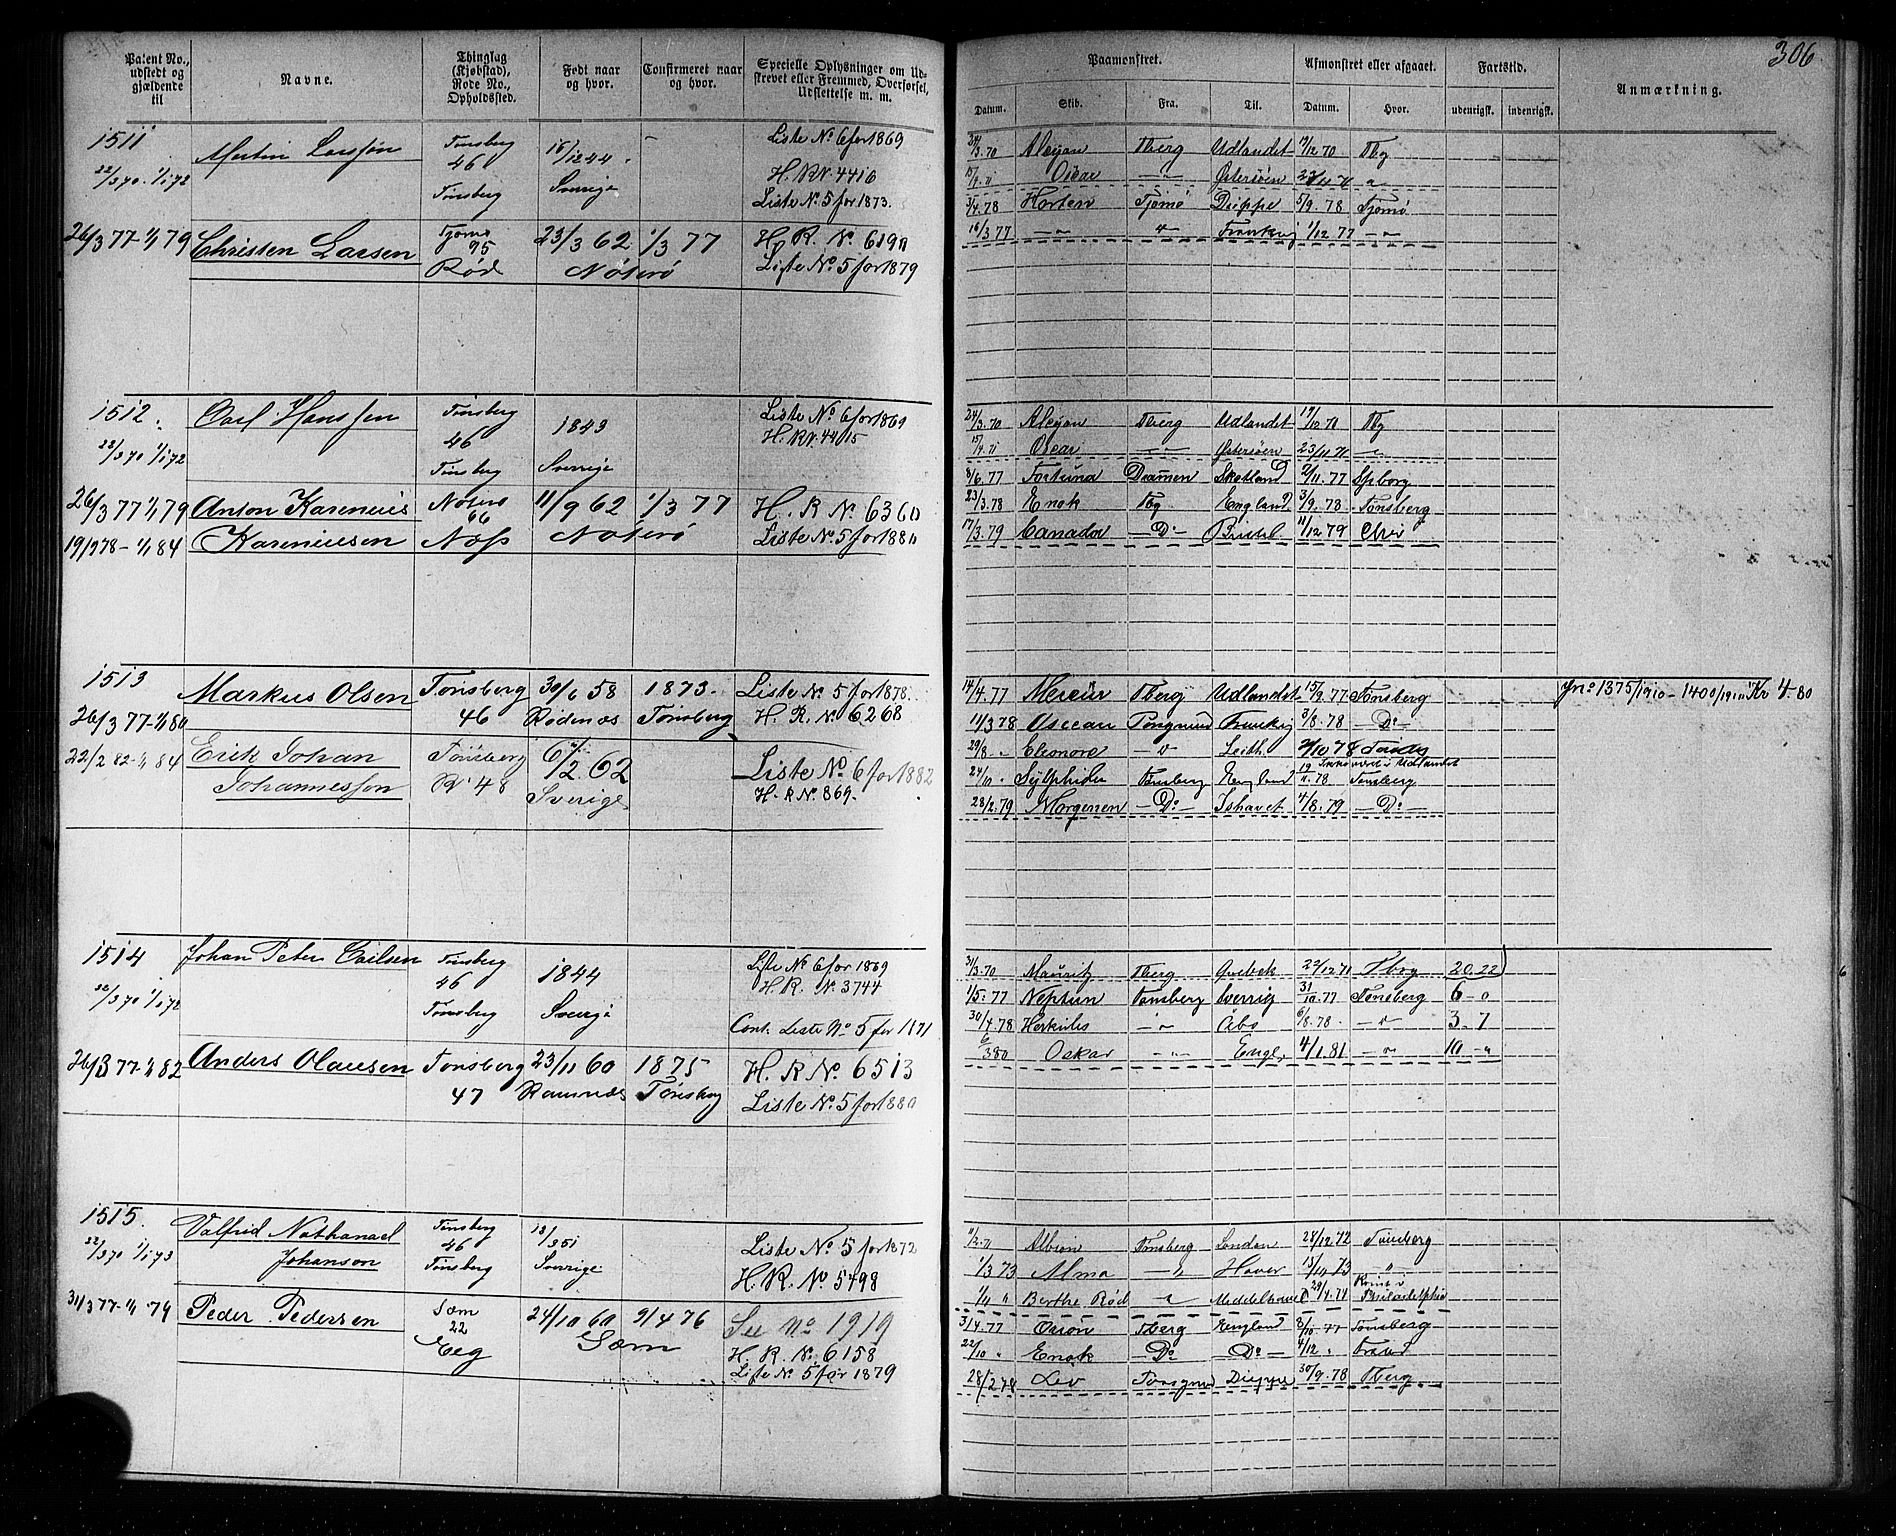 306
Patent No., udstedt og gjældende til
Navne.
Thinglag (Kjøbstad), Rode No., Opholdssted.
Født naar og hvor.
Confirmeret naar og hvor.
Specielle Oplysninger om Udstrevet eller Fremmed, Overførsel, Udslettelse m. m.
Paamønstret.
Afmønstret eller afgaaet.
Fartstid.
Anmærkning.
Datum. Skib. Fra. Til. Datum. Hvor. udenrigsk. indenrigsk.
1511
22/3 70. 1/1 72
Martin Larssøn
Tønsberg
46
Tønsberg
15/12 44.
Sverige
Liste No 6 for 1869
H. R. No. 4416
Liste No. 5 for 1873.
26/3 77-1/1 79
Christen Larsen
Tjømø
95
Rød
23/3 62
1/3 77
Nøterø
H. R. No. 6190
Liste No. 5 for 1879
Tberg Udlandet 17/12 70 Tbg
Oscar Østersøen 23/11 71
3/4. 78 Horten Tjømø Dieppe 5/9. 78 Tjømø
16/3 77 Frankrig 1/12 77
1512.
22/3 70 1/1 72
Carl Hanssen
Tønsberg
46
Tønsberg
1843
Sverrige
Liste No 6 for 1869
H. R. No. 4415
26/3 77 1/1 79
19/9 78 - 1/1 84
Anton Karenius
Kareniusen
Nøterø
66
Næss
11/9 62
1/3 77
Nøterø
H. R. No. 6360
Liste No. 5 for 1880
24/3. 70 Tberg Udlandet 17/12 70 Tbg
15/4. 71 Oscar Østersøen 23/11 71
8/6. 77 Fortuna Dramen Skotland 2/11. 77 Spborg
23/3. 78 Enok Tbg England 3/9. 78 Tønsberg
17/3. 79 Canada Do Bristol 11/12 79 Chria
1513
26/3 77-1/1 80
Markus Olsen
Tønsberg
46
30/6 58
Rødenæs
1873.
Tønsberg
Liste No. 5 for 1878.
H. R. No 6268
22/2 82-1/1 84
Erik Johan
Johannesson
Tønsberg
R 48
6/2. 62
Sverige
Liste No. 6 for 1882
H. R No. 869.
14/4. 77 Mercur Tberg Udlandet 15/9. 77 Tønsberg
Jno 1375/1910 - 1400/1910 Kr 4-80
11/3 78 Oscean Frankrig 3/8. 78 Do
29/8. Eleonora Leith
Sylphiden Tønsberg England 19/11. 78 Tønsberg
28/2. 79 Morgenen Do Ishavet 4/8. 79 Do
1514
22/3 70 1/1 72
Johan Peter Carlsen
Tønsberg
46
Tønsberg
1844
Sverige
Liste No 6 for 1869
H. R. No. 3744
Cont. Liste No 5 for 1871
26/3 77-1/1 82
Anders Olausen
Tønsberg
47
23/11 60
Ramnæs
1875
Tønsberg
H. R. No. 6513
Liste No. 5 for 1880
31/3. 70 Mauritz Tberg Qvebek 22/12 71 Tbrg 20. 22
1/5. 77 Neptun Tønsberg Sverrig 31/10. 77 Tønsberg 6 - 0
30/4. 78 Herkules Åbo 6/8. 78 3. 7
6/3 80 Oskar Engl. 4/1. 81 10
1515.
22/3 70 1/1 73
Valfrid Nathanael
Johanson
Tønsberg
46
Tønsberg
18/3 51
Sverrige
Liste No. 5 for 1872
H. R. No 5498
31/3 77-1/1 79
Peder Pedersen
Sæm
22
Eeg
24/10 60
9/4 76
Sæm
Se No 1919
H. R. No. 6158
Liste No. 5 for 1879
11/2. 71 Albion Tønsberg London 28/12. 72 Tønsberg
1/3 73 Alma Havre 13/11 73
1/11 Berthe Rød Middelhavet 29/4. 74 Rømt i Philadelphia
3/4. 77 Orion Tberg England 8/10 77 Tønsberg
22/10 Enok Do Do 4/12
28/2 78 Lev Dieppe 30/9. 78 Tberg